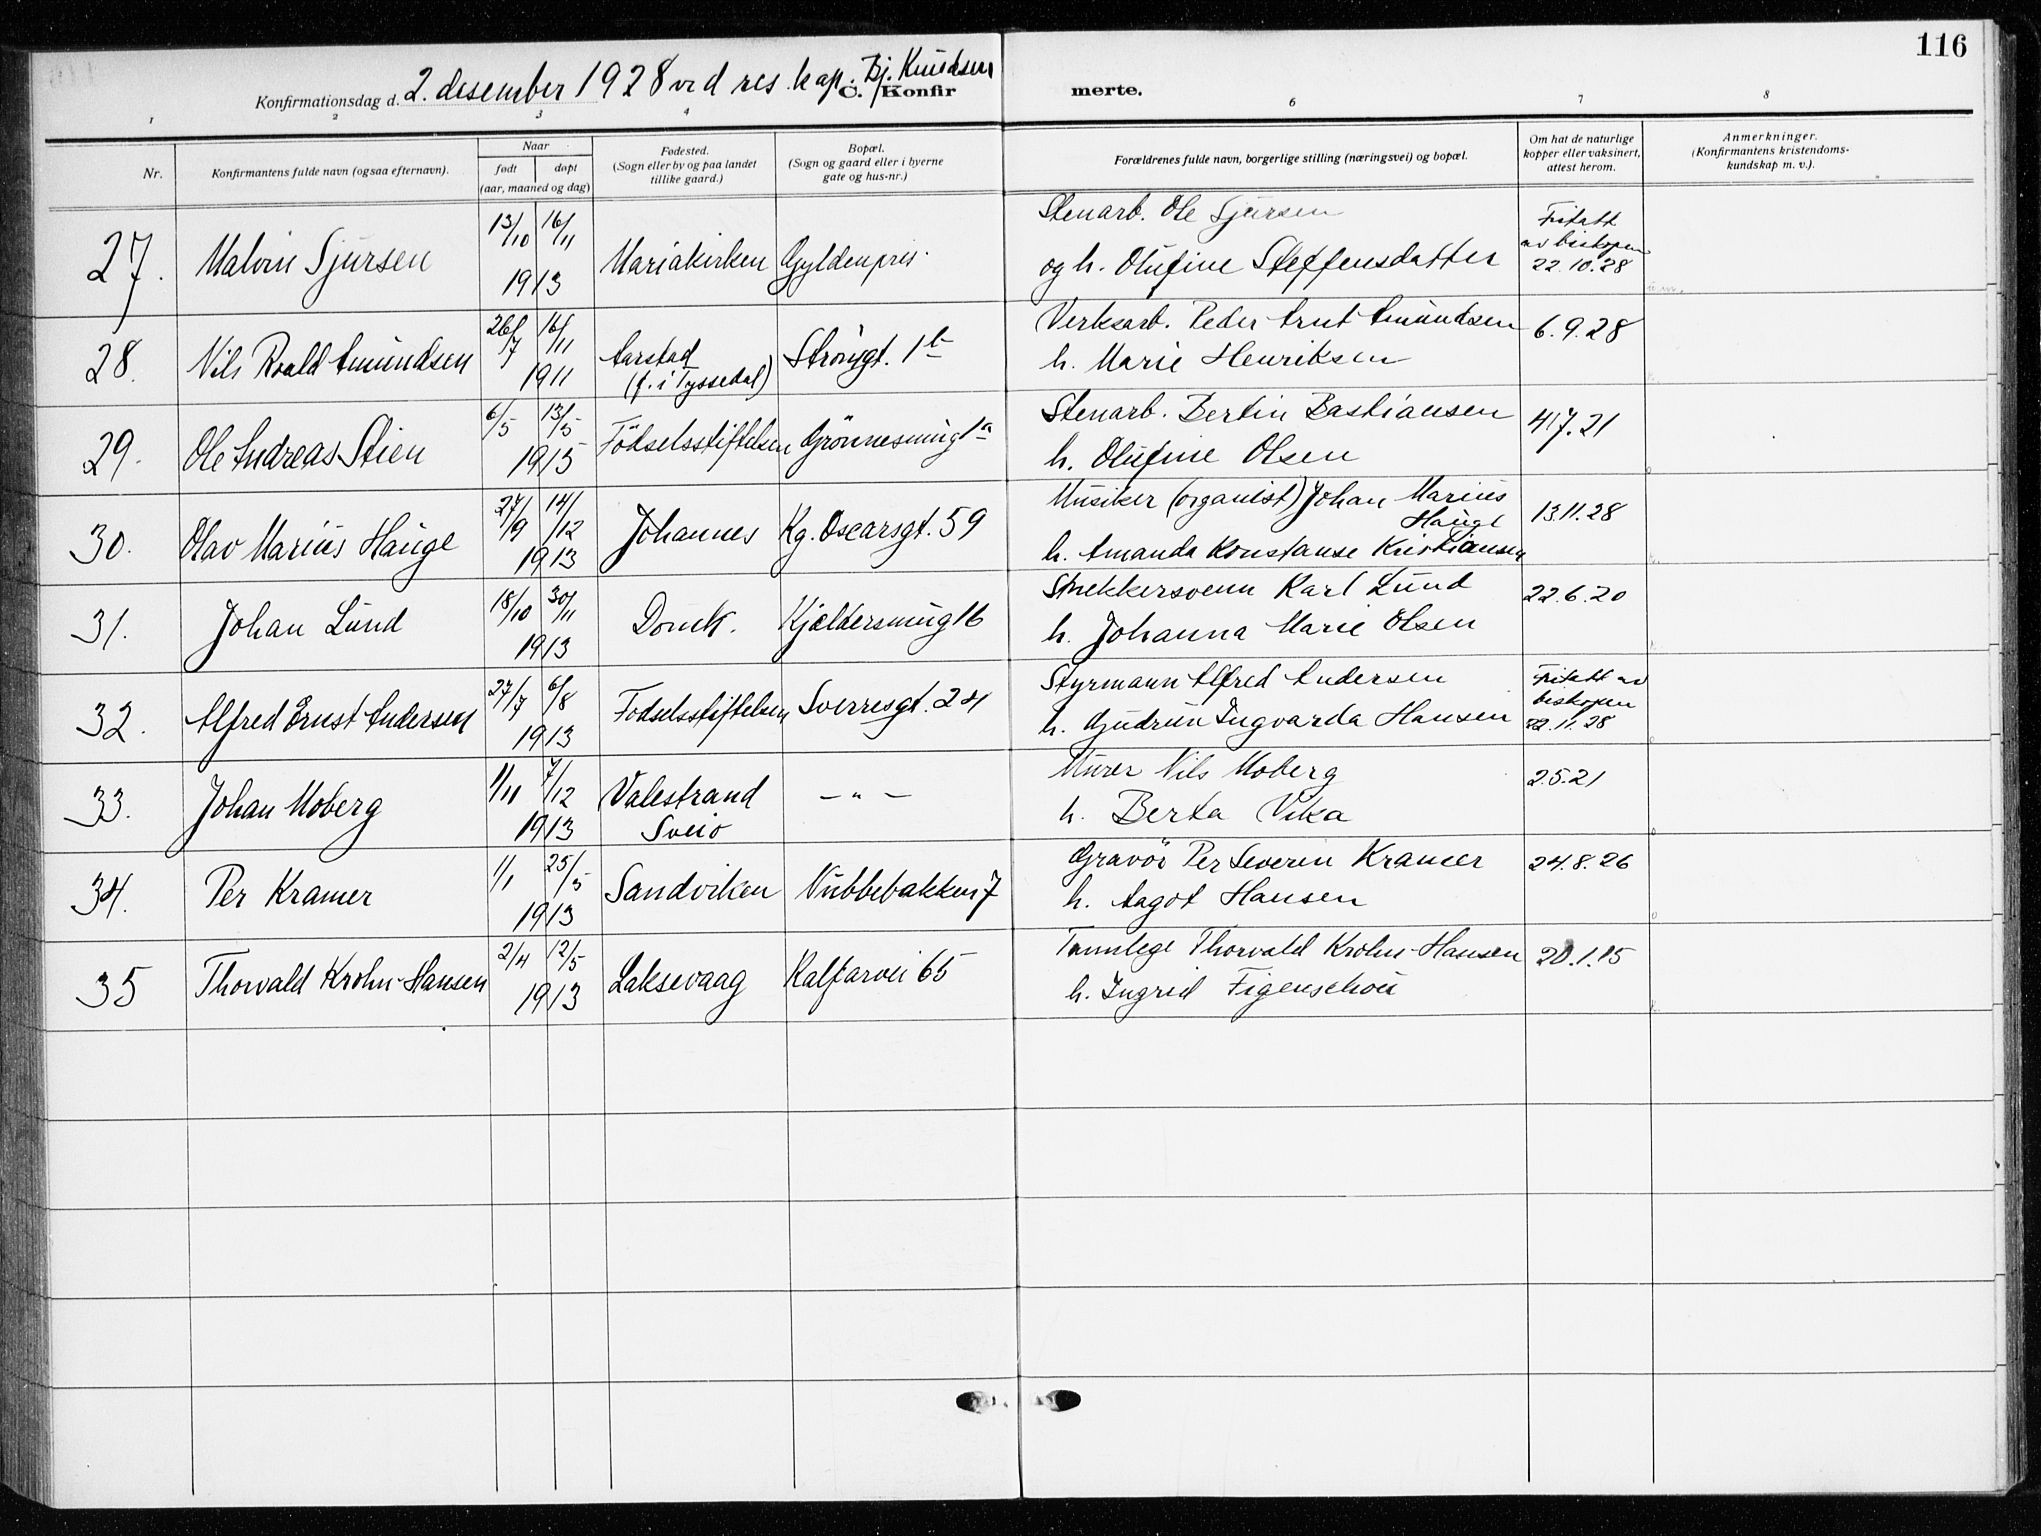 116
Konfirmationsdag d. 2. desember 1928 ved res. kap. Bj. Knudsen
C. Konfirmerte.
1 2 3 4 6 7 8
Nr.
Konfirmantens fulde navn (ogsaa efternavn).
Naar
født døpt
(aar, maaned og dag)
Fødested.
(Sogn eller by og paa landet
tillike gaard.)
Bopæl.
(Sogn og gaard eller i byerne
gate og hus-nr.)
Forældrenes fulde navn, borgerlige stilling (næringsvei) og bopæl.
Om hat de naturlige
kopper eller vaksinert,
attest herom.
Anmerkninger.
(Konfirmantens kristendoms-
kundskap m. v.).
27. Malvin Sjursen 13/10 16/11 1913 Mariakirken Gyldenpris.
Stenarb. Ole Sjursen
og h. Olufine Steffensdatter
Fritatt
av biskopen
22.10.28
28. Nils Roald Amundsen 26/7 16/11 1911 Aarstad
(f. i Tyssedal)
Strømgt. 1b
Verksarb. Peder Arnt Amundsen
h. Marie Henriksen
6.9.28
29. Ole Andreas Stien 6/5 13/5 1915 Födselsstiftelsen Grönnesmug 1a
Stenarb. Bertin Bastiansen
h. Olufine Olsen
4/7.21
30. Olav Marius Hauge 27/9 14/12 1913 Johannes Kg. Oscarsgt. 59
Musiker (organist) Johan Marius
Hauge
h. Amanda Konstanse Kristiansen
13.11.28
31. Johan Lund 18/10 30/11 1913 Domk. Kjeldersmug 16
Snekkersvenn Karl Lund
h. Johanna Marie Olsen
22.6.20
32. Alfred Ernst Andersen 27/7 6/8 1913 Fodselsstiftelsen Sverresgt. 24
Styrmann Alfred Andersen
h. Gudrun Ingvarda Hansen
Fritatt av
biskopen
22.11.28
33. Johan Moberg 1/11 7/12 1913 Valestrand
Sveio
— " —
Murer Nils Moberg
h. Berta Vika
2.5.21
34. Per Kramer 1/1 25/5 1913 Sandviken Nubbebakken 7
Gravör Per Severin Kramer
h. Aagot Hansen
24.8.26
35 Thorvald Krohn-Hansen 2/4 12/5 1913 Laksevaag Kalfarvei 65
Tannlege Thorvald Krohn-Hansen
h. Ingrid Figenschou
20.1.15